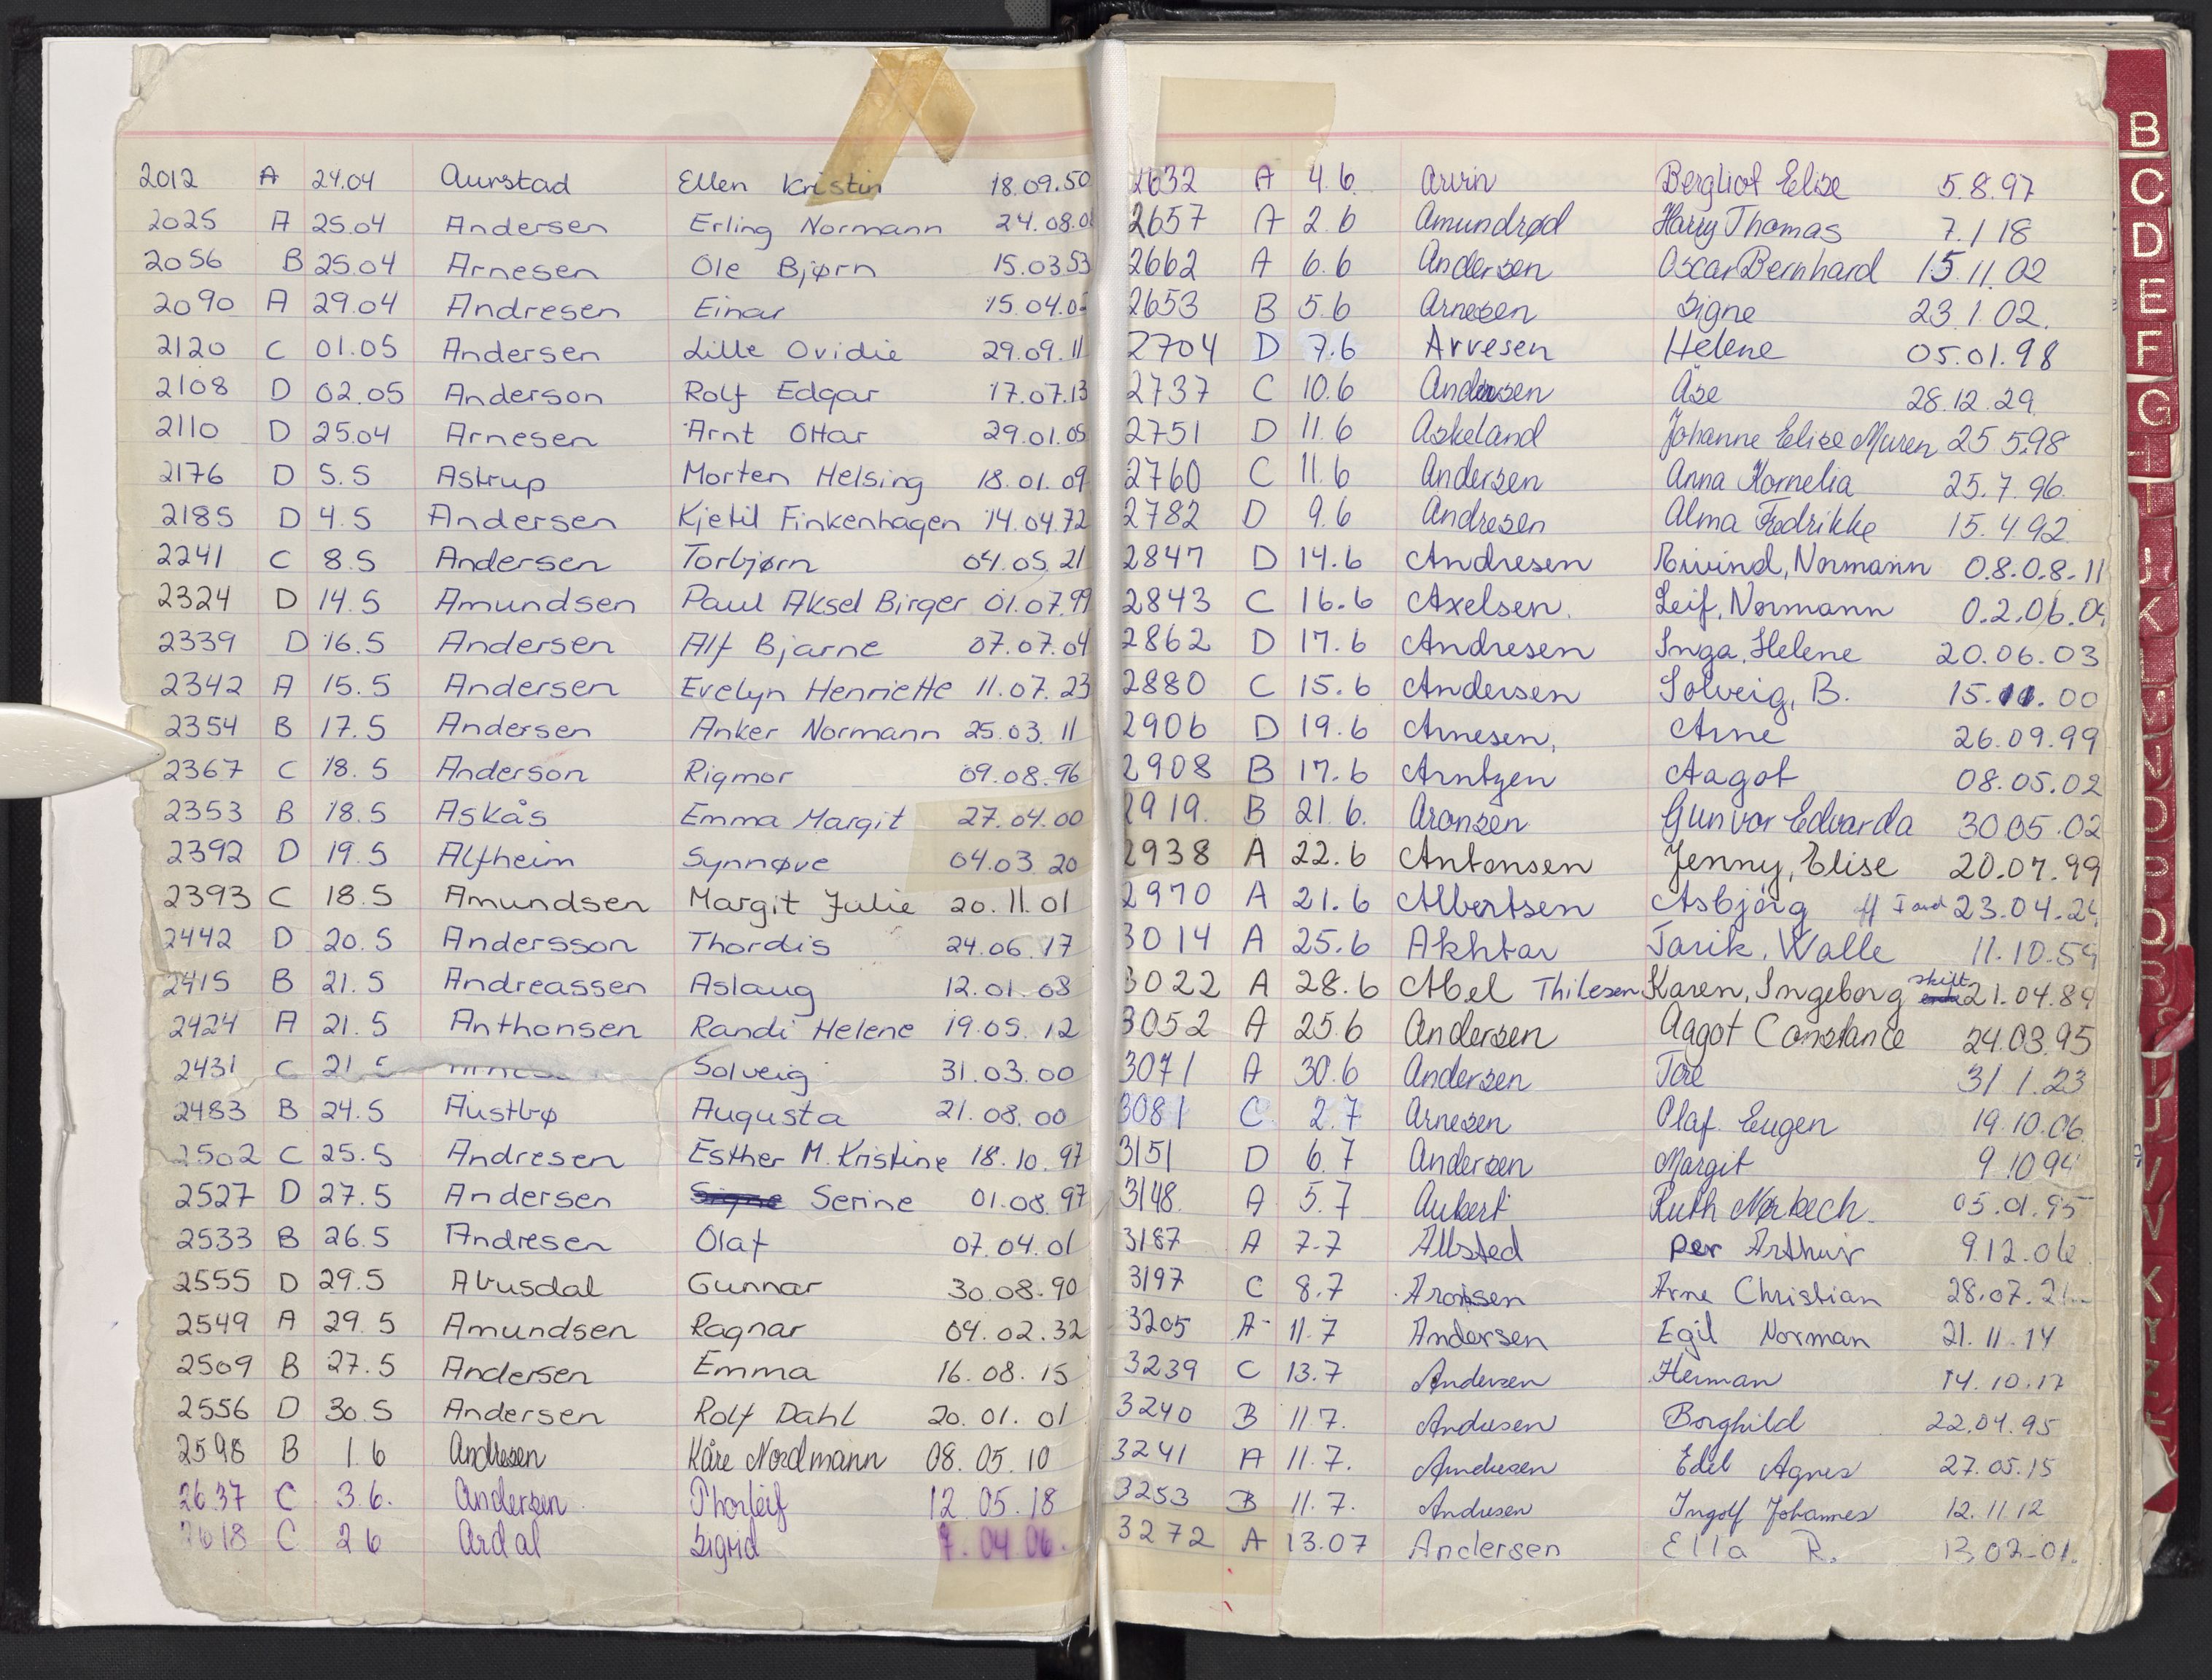 2012 A 24.04 Aurstad Ellen Kristin 18.09.50
2025 A 25.04 Andersen Erling Normann 24.08.0
2056 B 25.04 Arnesen Ole Bjørn 15.03 53
2090 A 29.04 Andresen Einar 15.04.0
2120 C 01.05 Andersen Lille Ovidie 29.09.11
2108 D 02.05 Anderson Rolf Edgar 17.07.13
2110 D 25.04 Arnesen Arnt Ottar 29.01.05
2176 D 5.5 Astrup Morten Helsing 18.01.09
2185 D 4.5 Andersen Kjetil Finkenhagen 14.04.72
2241 C 8.5 Andersen Torbjørn 04.05.21
2324 D 14.5 Amundsen Paul Aksel Birger 01.07.99
2339 D 16.5 Andersen Alf Bjarne 07.07.04
2342 A 15.5 Andersen Evelyn Henriette 11.07.23
2354 B 17.5 Andersen Anker Normann 25.03.11
2367 C 18.5 Anderson Rigmor 09.08.96
2353 B 18.5 Askås Emma Margit 27.04.00
2392 D 19.5 Alfheim Synnøve 04.03 20
2393 C 18.5 Amundsen Margit Julie 20.11.01
2442 D 20.5 Andersson Thordis 24.06.17
2415 B 21.5 Andreassen Aslaug 12.01.08
2424 A 21.5 Anthonsen Randi Helene 19.05.12
2431 C 21.5 Solveig 31.03.00
2483 B 24.5 Austbø Augusta 21.08.00
2502 C 25.5 Andresen Esther M. Kristine 18.10.97
2527 D 27.5 Andersen Signe Serine 01.08.97
2533 B 26.5 Andresen Olaf 07.04.01
2555 D 29.5 Abusdal Gunnar 30.08.90
2549 A 29.5 Amundsen Ragnar 04.02.32
2509 B 27.5 Andersen Emma 16.08.15
2556 D 30.5 Andersen Rolf Dahl 20.01.01
2598 B 1.6 Andresen Kåre Nordmann 08.05.10
2637 C 3.6. Andersen Thorleif 12.05.18
2618 C 2 6 Ardal Sigrid 7.04 06.
2632 A 4.6. Arvin Bergliot Elise 5.8.97
2657 A 2.6 Amundrød Harry Thomas 7.1 18
2662 A 6.6 Andersen Oscar Bernhard 15.11.02
2653 B 5.6 Arnesen Signe 23.1.02.
2704 D 7.6 Arvesen Helene 05.01.98
2737 C 10.6 Andersen Åse 28.12.29
2751 D 11.6 Askeland Johanne Elise Maren 25 5.98
2760 C 11.6 Andersen Anna Kornelia 25.7.96.
2782 D 9.6 Andresen Alma Fredrikke 15.4.92
2847 D 14.6 Andresen Eivind, Normann 0.8.0.8.11
2843 C 16.6 Axelsen. Leif, Normann 0.2.06.0
2862 D 17.6 Andresen Inga, Helene 20.06.03
2880 C 15.6 Andersen Solveig, B. 15.11.00
2906 D 19.6 Arnesen, Arne 26.09.99
2908 B 17.6 Arntzen Aagot 08.05.02
2919. B 21.6. Aronsen Gunvor Edvarda 30.05.02
2938 A 22.6 Antonsen Jenny, Elise 20.07.99
2970 A 21.6 Albertsen Asbjörg 23.04.24
3014 A 25.6 Akhtar Tarik, Walle 11.10.59
3022 A 28.6 Abel Thilesen Karen, Ingeborg skift 21.04.89
3052 A 25.6 Andersen Aagot Constance 24.03.95
3071 A 30.6 Andersen Tore 31 1.23
3081 C 2.7 Arnesen Olaf Eugen 19.10.06
3151 D 6.7 Andersen Margit 9.10 94
3148 A 5.7 Aubert Ruth Nørbech 05.01.95
3187 A 7.7 Albsted per Arthur 9.12.06
3197 C 8.7 Aronsen Arne Christian 28.07.21
3205 A 11.7 Andersen Egil Norman 21.11.14
3239 C 13.7 Andersen Herman 14.10.17
3240 B 11.7. Andersen Borghild 22.04.95
3241 A 11.7. Andresen Edel Agnes 27.05.15
3253 B 11.7. Andresen Ingolf Johannes 12.11.12
3272 A 13.07 Andersen Ella R. 13.02-01.
B
C
D
E
F
G
H
I
J
K
L
M
N
O
P
Q
R